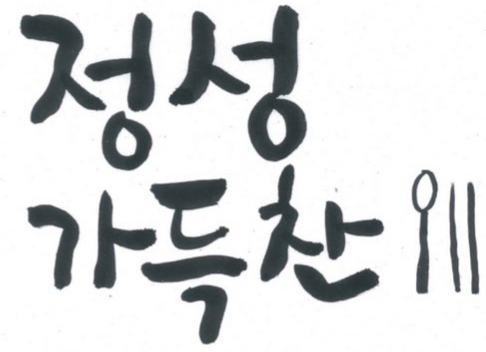 정성
가득찬